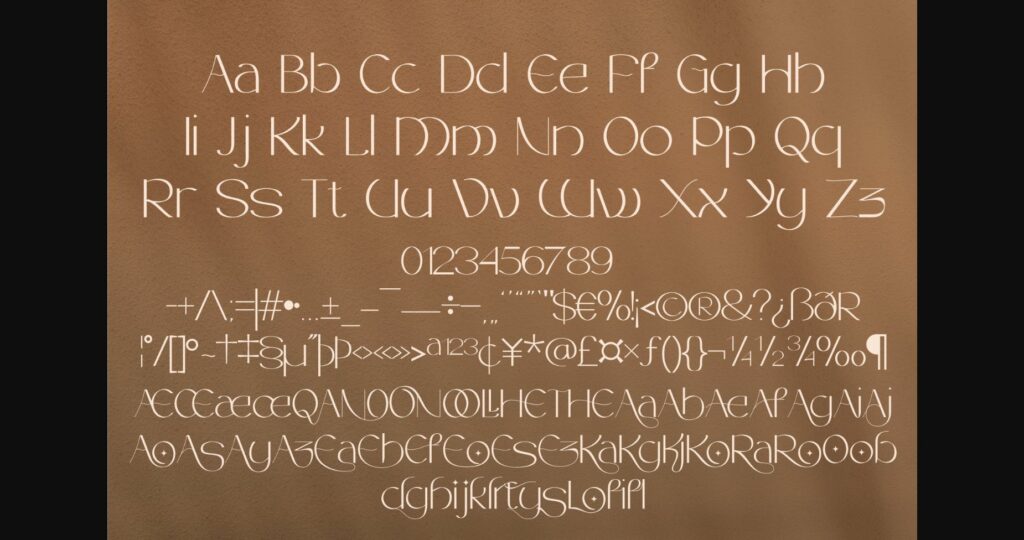 Aa Bb Cc Dd Ee Ff Gg Hh
Ii Jj Kk Ll Mm Nn Oo Pp Qq
Rr Ss Tt Uu Vv Ww Xx Yy Zz
0123456789
-+/\;=|#•·…±_–¯—÷−‚„‘’“”`'"$€%!¡<©®&?¿ßðR
¦°/[]°~†‡§µ"þÞ<><>>>a123¢¥*@£¤×ƒ(){}¬¼½¾‰¶
ÆŒŒæœœQANOONOOLLHETHEAaAbAeAfAgAiAj
AoASAyAzEaEbEfEoEsEzKaKgKjKoRaRoOob
dghijklrtysLofifl